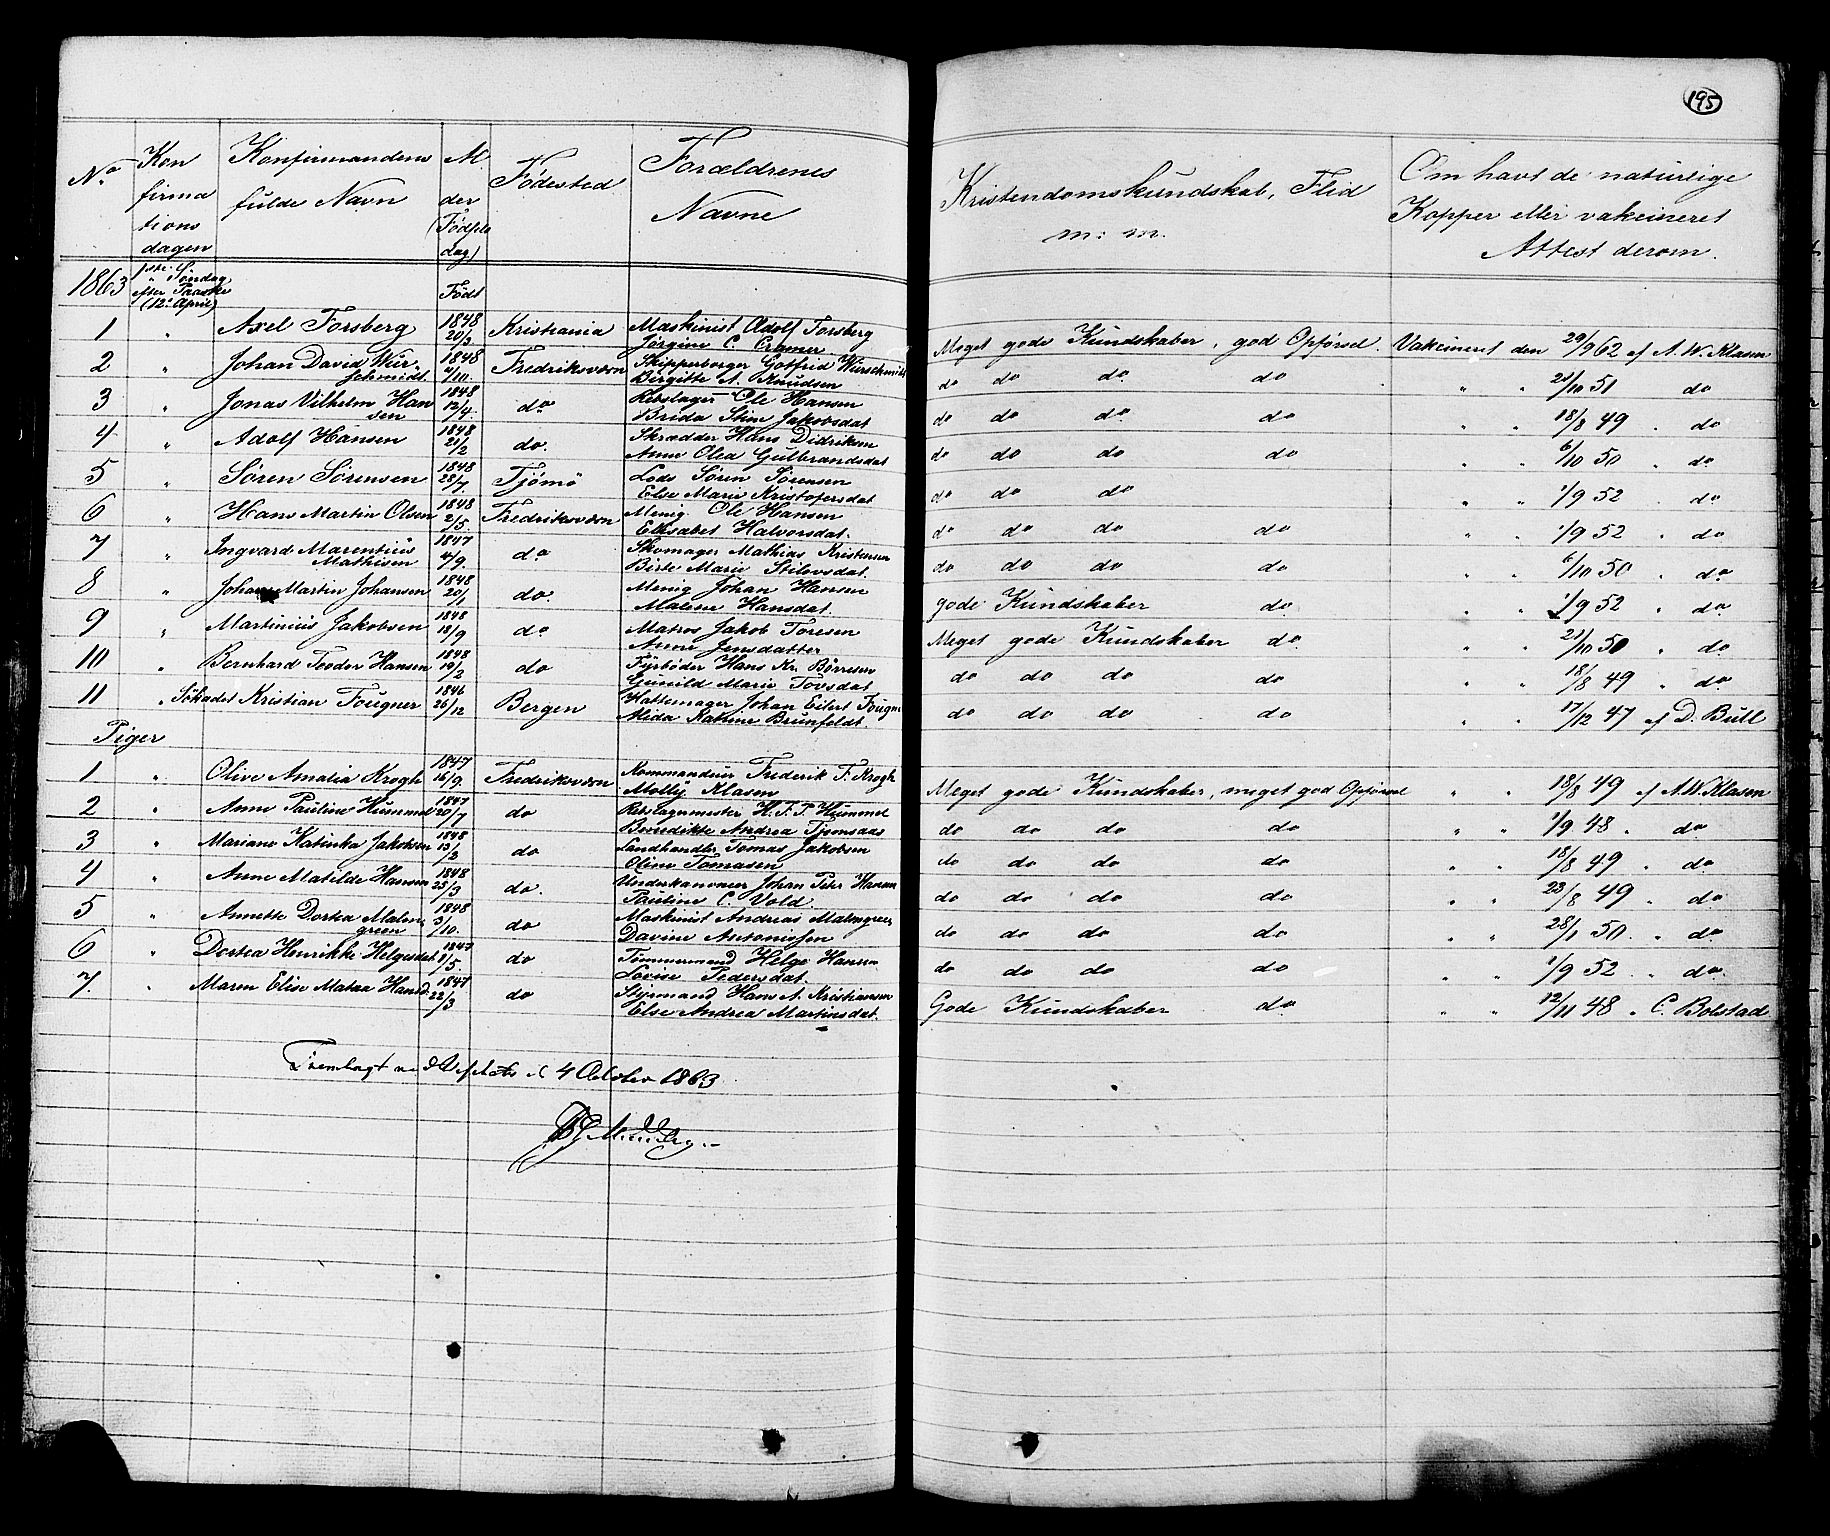 195
No
Kon
firma
tions
dagen
Konfirmandens
fulde Navn
Al
der
(Fødsels
dag)
Fødested
Forældrenes
Navne
Kristendomskundskab, Flid
m: m.
Om havt de naturlige
Kopper eller vakcineret
Attest derom.
1863 1ste Søndag
efter Paaske
(12te April) Født
1 " Axel Forsberg 1848 20/3 Kristiania Maskinist Adolf Forsberg Meget gode Kundskaber, god Opførsel. Vakcineret den 29/9 62 af A. W. Klasen
Jørgine C. Cramer
2 " Johan David Wür- 1848 4/10. Fredriksværn Skipperborger Gotfrid Würschmidt do do do do " " 21/10 51 do
schmidt. Birgitte A. Knudsen
3 " Jonas Vilhelm Han 1848 12/4. do Rebslager Ole Hansen do do do do " " 18/8 49 " do
sen Brida Stine Jakobsdat
4 " Adolf Hansen 1848 21/2 do. Skrædder Hans Didriksen do do do do " " 6/10 50 " do
Anne Olea Gulbrandsdat
5 " Søren Sørensen 1848 28/7 Tjömö Lods Søren Sørensen do do do " " 1/9 52 " do
Else Marie Kristofersdat
6 " Hans Martin Olsen 1848 2/5. Fredriksværn Menig Ole Hansen do do do do " " 1/9 52 " do
Elisabet Halvorsdat.
7 " Ingvard Marentius 1847 4/9. do Skomager Mathias Kristensen do do do do " " 6/10 50 " do
Mathisen Birte Marie Stilovsdat.
8 " Johan Martin Johansen 1848 20/1 do. Menig Johan Hansen gode Kundskaber do " " 1/9 52 " do
Malene Hansdat.
9 " Martinius Jakobsen 1848 18/9 do Matros Jakob Toresen Meget gode Kundskaber do " " 21/10 50 " do
Anne Jensdatter
10 " Bernhard Teodor Hansen 1848 19/2 do Fyrbøder Hans Kr. Børresen do do do do " " 18/8 49 " do
Gunild Marie Tovsdat
11 " Søkadet Kristian Fougner 1846 26/12 Bergen Hattemager Johan Eilert Fougn do do do do " " 17/12 47 af D. Bull
Mida Katrine Brunfeldt.
Piger
1 " Olive Amalia Krogh 1847 16/9. Fredriksværn Kommandeur Frederik F. Krogh Meget gode Kundskaber, meget god Opførsel " " 18/8 49 af A. W. Klasen
Molly Klasen
2 " Anne Pauline Hummel 1847 20/7 do Rebslagermester H. F. P. Hummel do do do do " " 1/9 48 " do
Benedikte Andrea Tjomsaas
3 " Mariane Katinka Jakobsen 1848 13/2 do Landhandler Tomas Jakobsen do do do do " " 18/8 49 " do
Oline Tomasen
4 " Anne Matilde Hansen 1848 25/3 do. Underkanoneer Johan Peter Hansen do do do do " " 23/8 49 " do
Pauline C. Vold.
5 " Annette Dortea Malm- 1848 3/10. do Maskinist Andreas Malmgreen do do do do " " 28/1 50. " do
green Davine Antonissen
6 " Dortea Henrikke Helgesdat 1847 1/5. do Tømmermand Helge Hansen do do do do " " 1/9 52 " do
Lovise Pedersdat.
7. " Maren Elise Matea Hansd. 1847 22/3 do Styrmand Hans A. Kristiansen Gode Kundskaber do " " 12/11 48 " C. Bolstad
Else Andrea Martinsdat.
4 October 1863